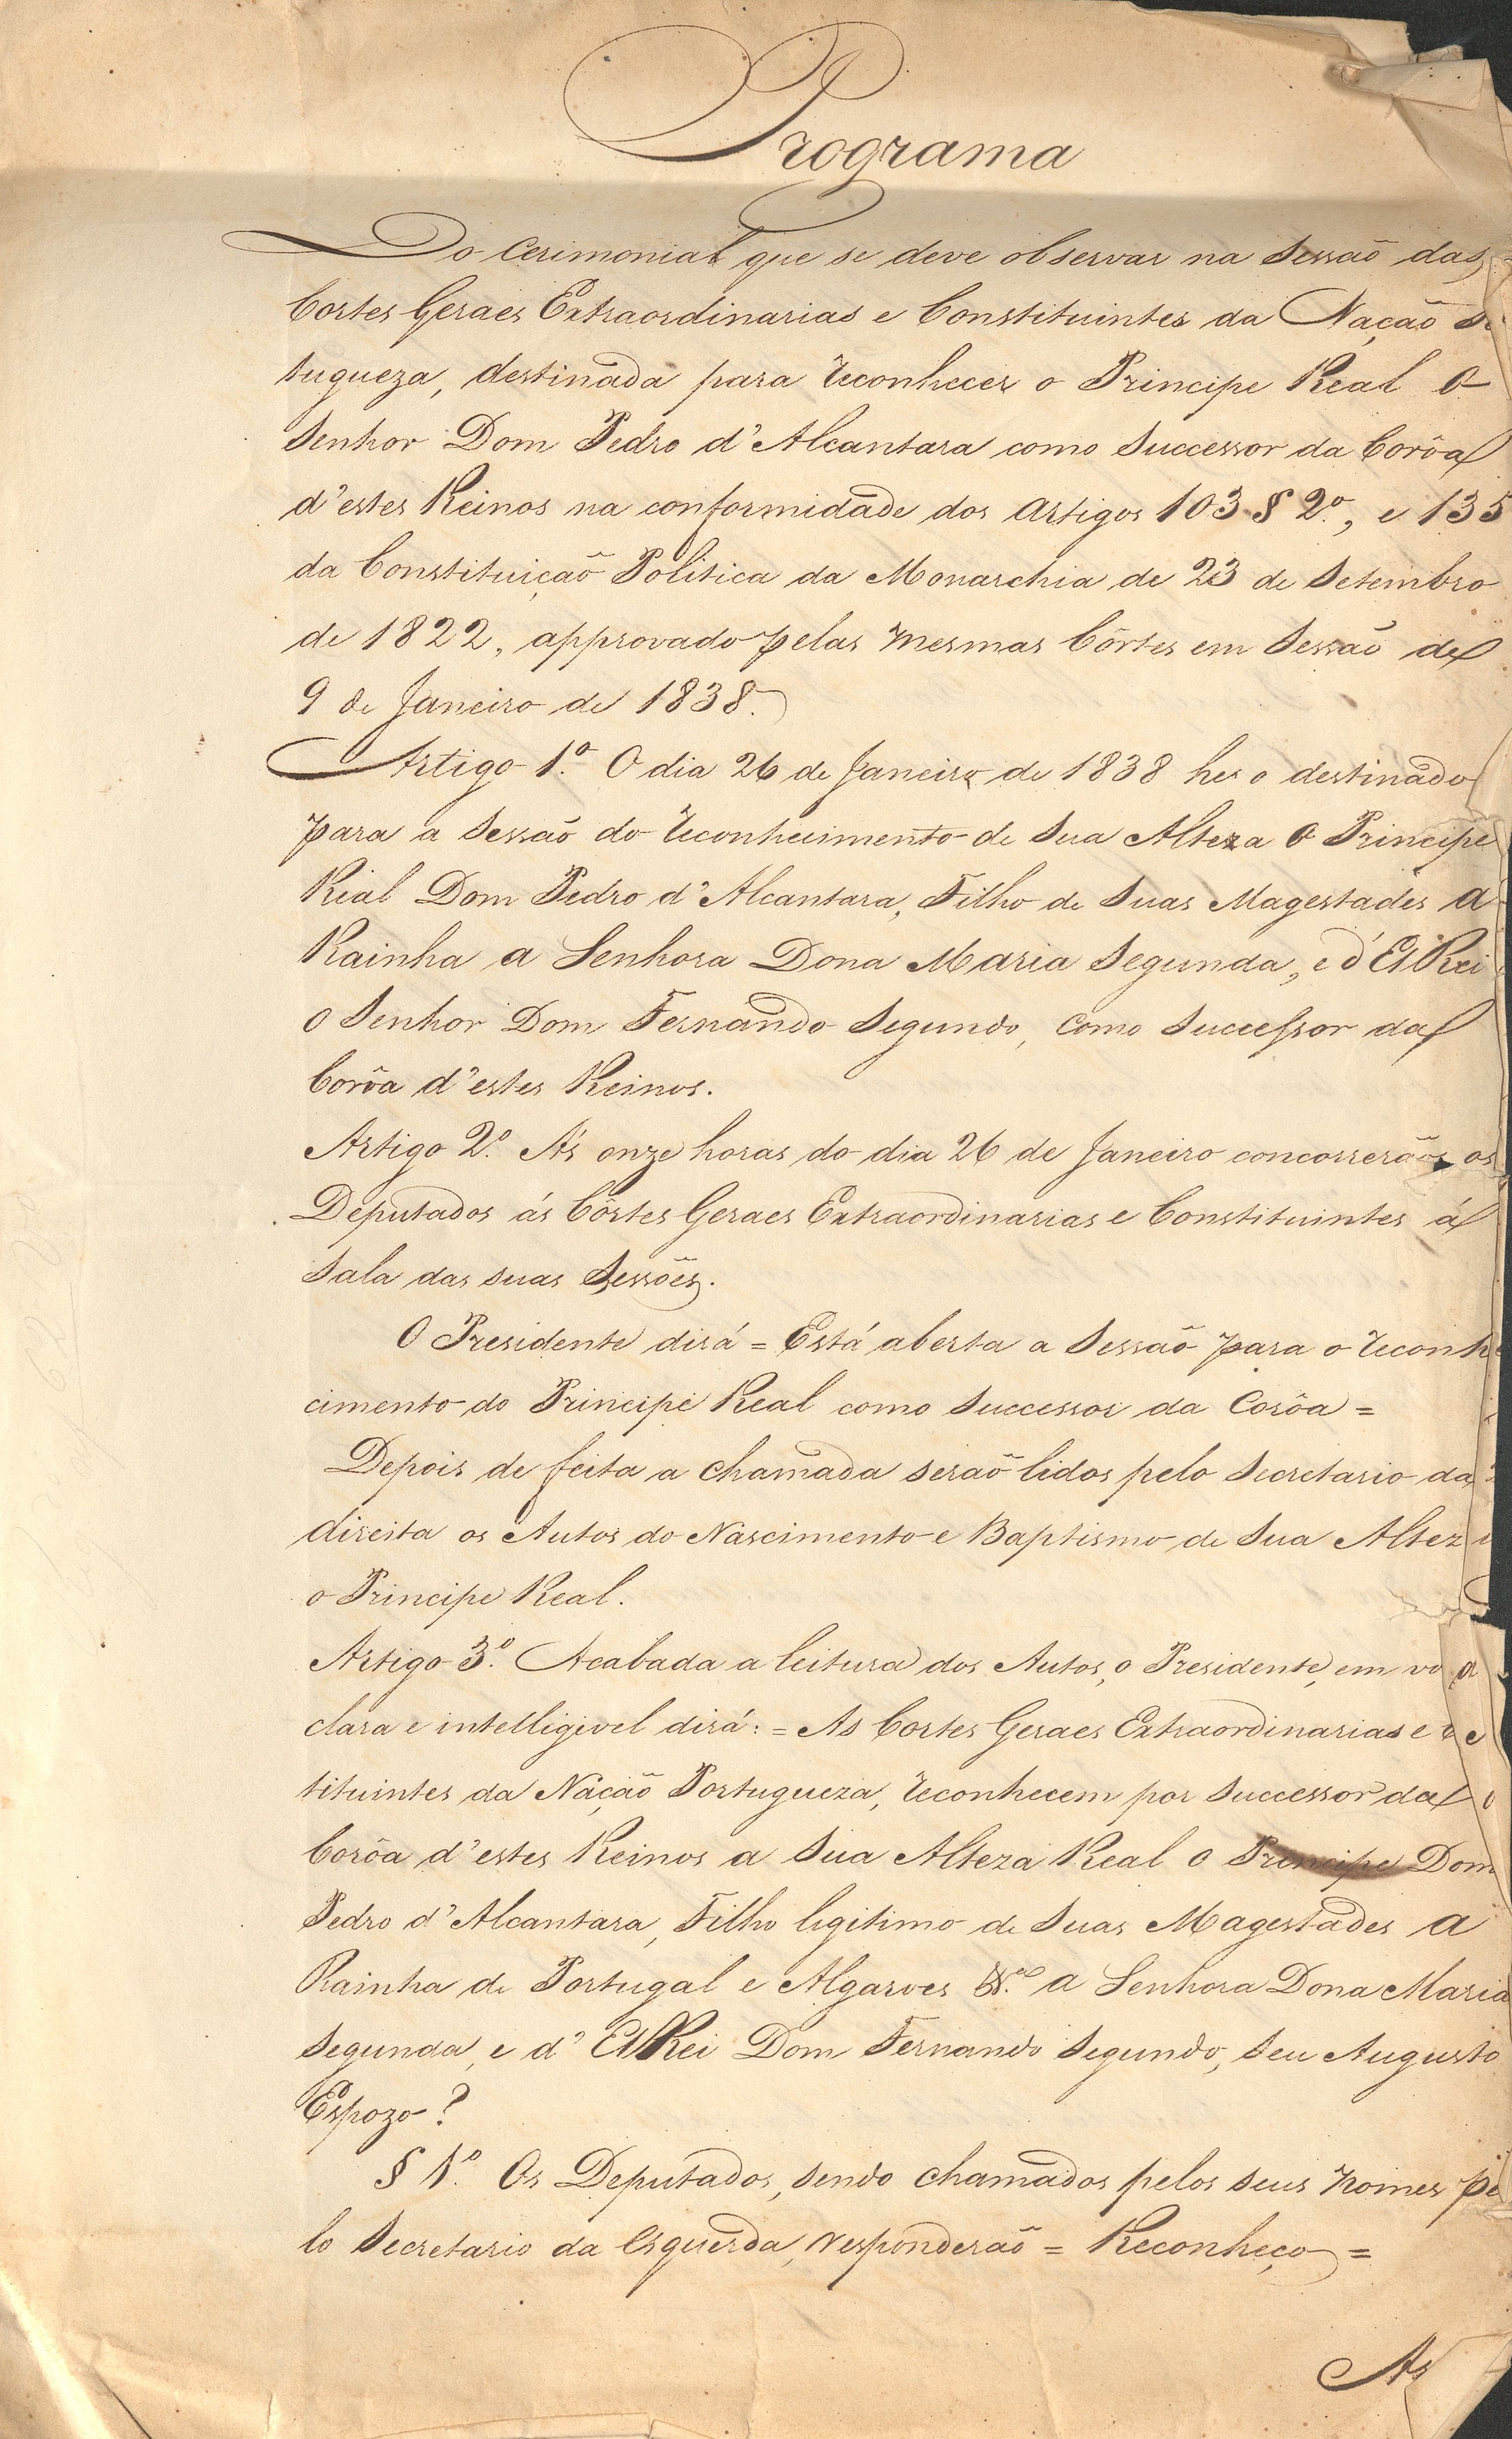 Programa
Do Cerimonial que se deve observar na Sessaõ das
Cortes Geraes Extraordinarias e Constituintes da Naçaõ
tugueza, destinada para reconhecer o Principe Real O
Senhor Dom Pedro d'Alcantara como Successor da Corôa
d'estes Reinos na conformidade dos Artigos 103 § 2º, e 135
da Constituiçaõ Politica da Monarchia de 23 de Setembro
de 1822, approvado pelas mesmas Côrtes em Sessaõ de
9 de Janeiro de 1838.
Artigo 1.º O dia 26 de Janeiro de 1838 he o destinado
para a Sessaõ do reconhecimento de Sua Alteza O Principe
Real Dom Pedro d'Alcantara, Filho de Suas Magestades A
Rainha a Senhora Dona Maria Segunda, e d'ElRei
o Senhor Dom Fernando Segundo, como Successor da
Corôa d'estes Reinos.
Artigo 2.º A's onze horas do dia 26 de Janeiro concorreraõ os
Deputados ás Côrtes Geraes Extraordinarias e Constituintes á
Sala das suas Sessões.
O Presidente dirá = Está aberta a Sessaõ para o reconhe
cimento do Principe Real como Successor da Corôa =
Depois de feita a chamada seraõ lidos pelo Secretario da
direita os Autos do Nascimento e Baptismo de Sua Alteza
o Principe Real.
Artigo 3.º Acabada a leitura dos Autos, o Presidente, em
clara e intelligivel dirá: = As Cortes Geraes Extraordinarias e
tituintes da Naçaõ Portugueza, reconhecem por Successor da
Corôa d'estes Reinos a Sua Alteza Real o Principe Dom
Pedro d'Alcantara, Filho legitimo de Suas Magestades A
Rainha de Portugal e Algarves a Senhora Dona Maria
Segunda, e d'ElRei Dom Fernando Segundo, Seu Augusto
Espozo?
§ 1.º Os Deputados, sendo chamados pelos seus nomes pe
lo Secretario da esquerda, responderaõ = Reconheço =
As